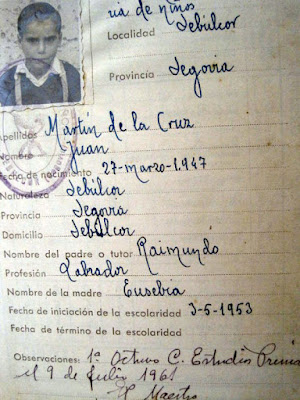 ria de niños
Localidad Sebúlcor
Provincia Segovia
Apellidos Martín de la Cruz
Nombre Juan
Fecha de nacimiento 27-Marzo-1.947
Naturaleza Sebúlcor
Provincia Segovia
Domicilio Sebúlcor
Nombre del padre o tutor Raimundo
Profesión Labrador
Nombre de la madre Eusebia
Fecha de iniciación de la escolaridad 3-5-1953
Fecha de término de la escolaridad
Observaciones: 1ª Octuvo C. Estudios Prima
el 9 de Julio 1961
El Maestro